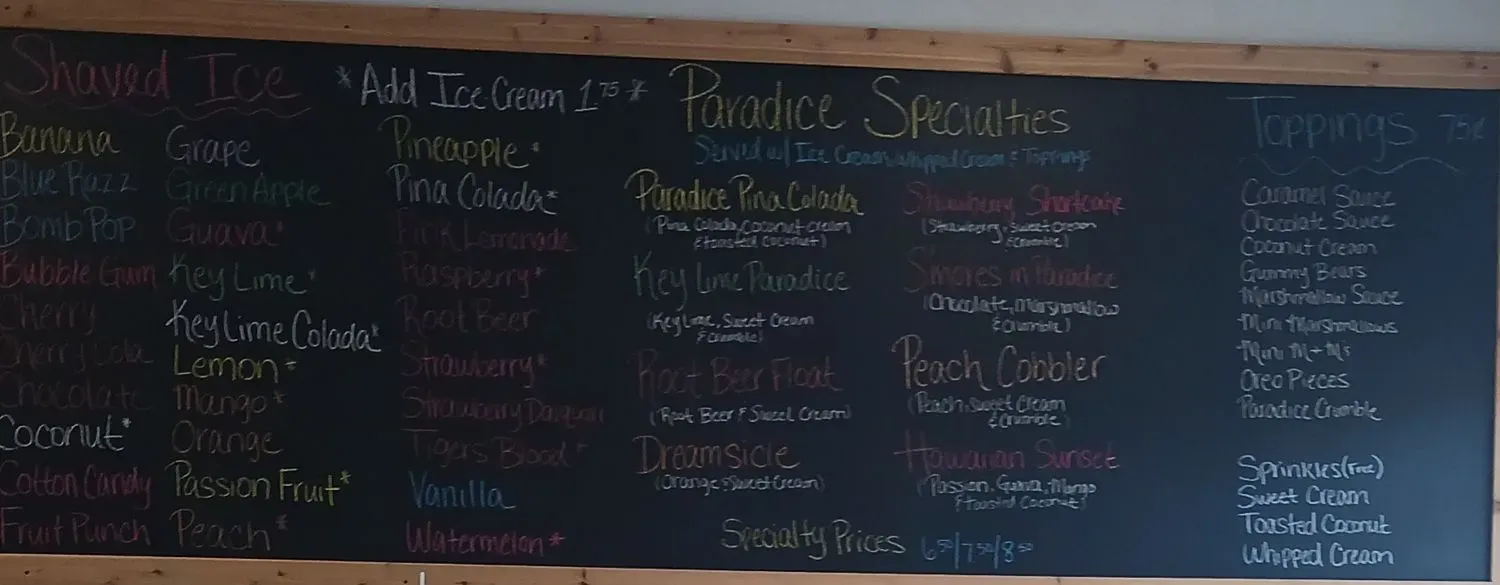 Shaved Ice
*Add Ice Cream 1.75*
Banana
Blue Razz
Bomb Pop
Bubble Gum
Cherry
Cherry Cola
Chocolate
Coconut*
Cotton Candy
Fruit Punch
Grape
Green Apple
Guava*
Key Lime*
Key Lime Colada*
Lemon*
Mango*
Orange
Passion Fruit*
Peach*
Pineapple*
Pina Colada*
Pink Lemonade
Raspberry*
Root Beer
Strawberry*
Strawberry Daiquiri
Tigers Blood*
Vanilla
Watermelon*
Paradice Specialties
Served w/ Ice Cream, Whipped Cream & Toppings
Paradice Pina Colada
(Pina Colada, Coconut Cream
& toasted Coconut)
Key Lime Paradice
(Key Lime, Sweet Cream
& Crumble)
Root Beer Float
(Root Beer & Sweet Cream)
Dreamsicle
(Orange & Sweet Cream)
Strawberry Shortcake
(Strawberry, Sweet Cream
& Crumble)
S'mores in Paradice
(Chocolate, Marshmallow
& Crumble)
Peach Cobbler
(Peach, Sweet Cream
& Crumble)
Hawaiian Sunset
(Passion, Guava, Mango
& Toasted Coconut)
Specialty Prices 6.50/7.50/8.50
Toppings 75¢
Caramel Sauce
Chocolate Sauce
Coconut Cream
Gummy Bears
Marshmallow Sauce
Mini Marshmallows
Mini M+M's
Oreo Pieces
Paradice Crumble
Sprinkles (Free)
Sweet Cream
Toasted Coconut
Whipped Cream